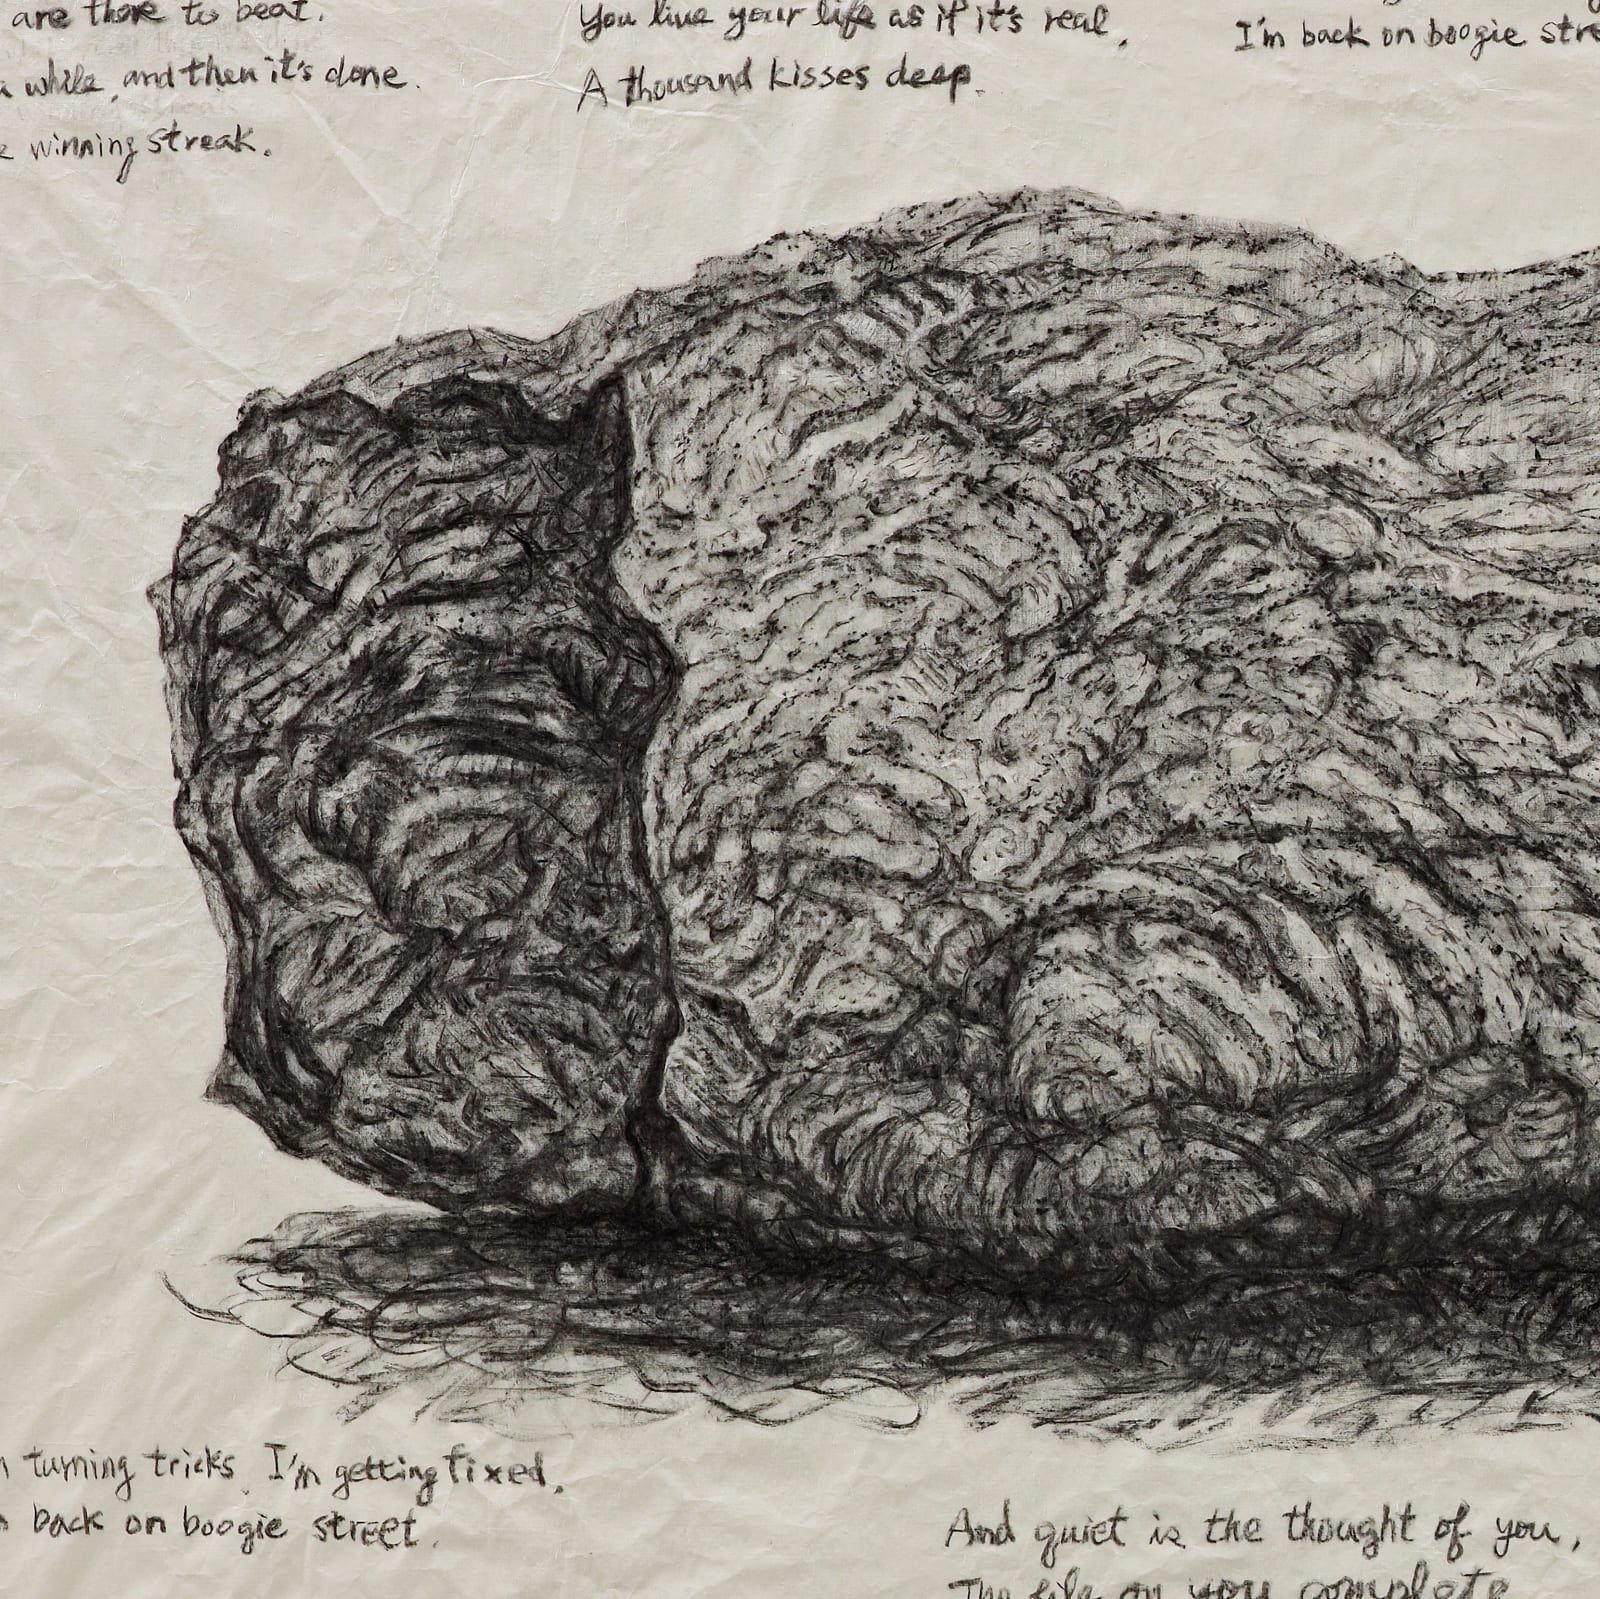 are thore to beat.
a while, and then it's done.
winning streak.
You live your life as if it's real,
A thousand kisses deep.
I'm back on boogie stre
turning tricks, I'm getting fixed,
back on boogie street.
And quiet is the thought of you,
The file on you complete